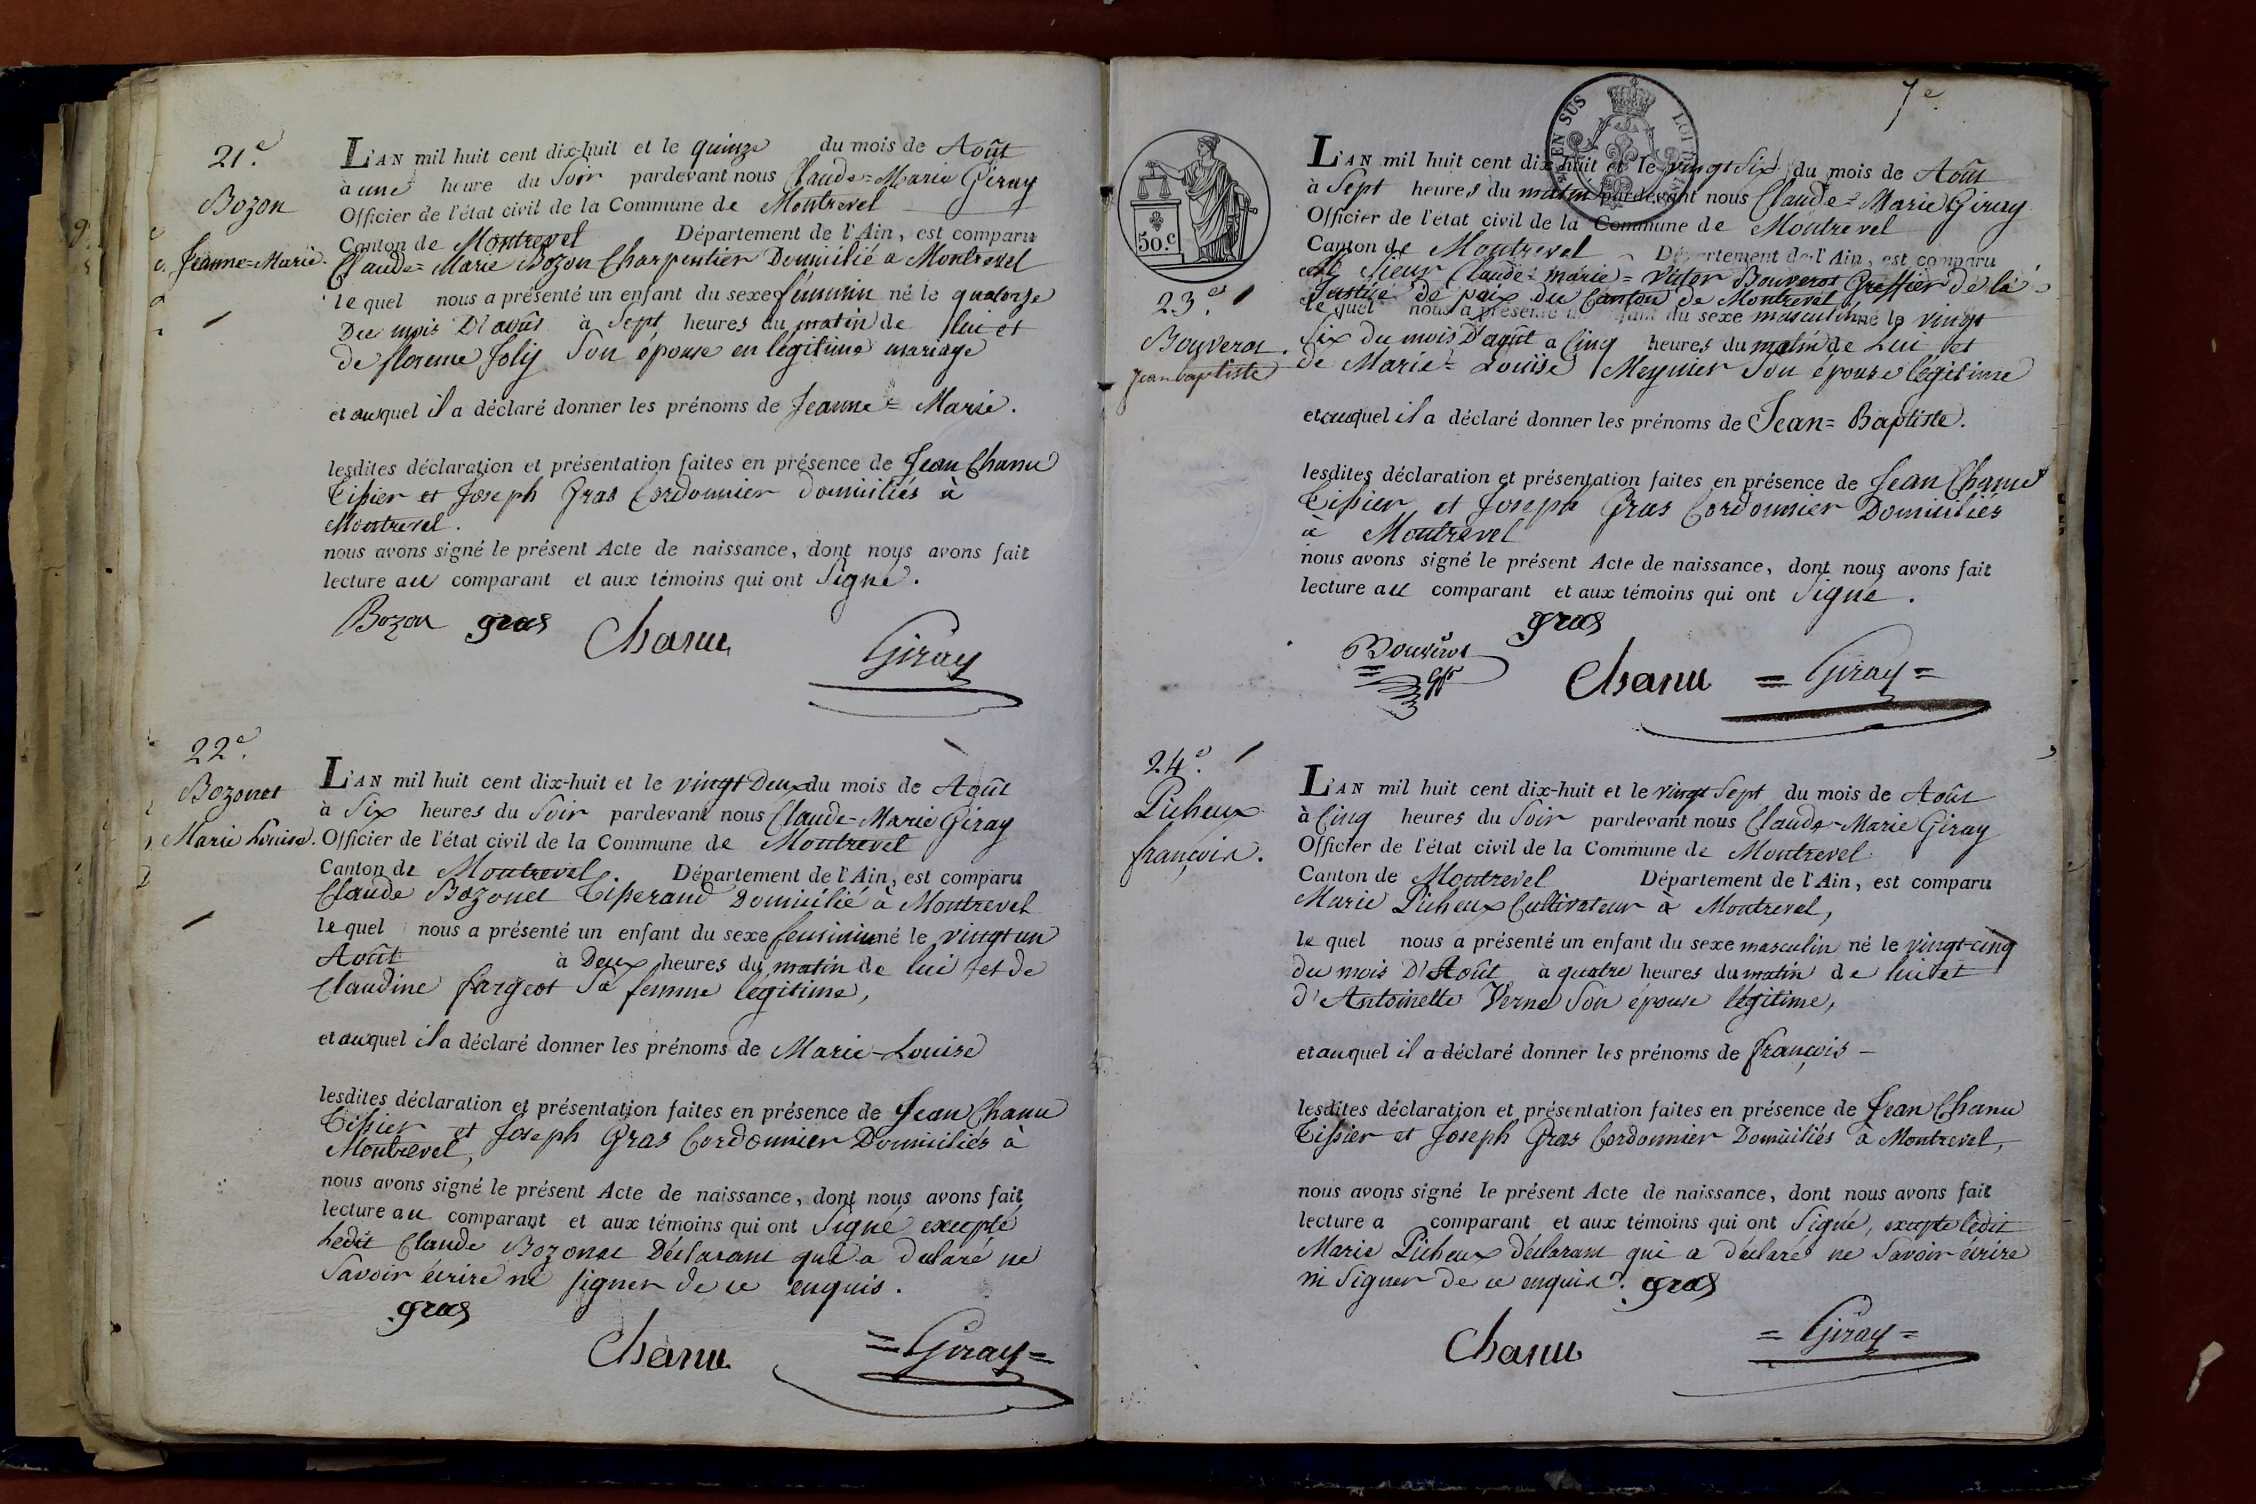 21.e
Bozon
Jeanne=Marie.
L'AN mil huit cent dix-huit et le quinze du mois de Août
à une heure du Soir pardevant nous Claude=Marie Giray
Officier de l'état civil de la Commune de Montrevel
Canton de Montrevel Département de l'Ain, est comparu
Claude=Marie Bozon Charpentier Domicilié a Montrevel
lequel nous a présenté un enfant du sexe féminin né le quatorze
Du mois D'août à Sept heures du matin de lui et
de florence Joly Son épouse en légitime mariage
et auquel il a déclaré donner les prénoms de Jeanne=Marie.
lesdites déclaration et présentation faites en présence de Jean Chanu
Tissier et Joseph Gras Cordonnier domiciliés à
Montrevel.
nous avons signé le présent Acte de naissance, dont nous avons fait
lecture au comparant et aux témoins qui ont Signé.
Bozon gras Chanu Giray
22.e
Bozonet
Marie Louise.
L'AN mil huit cent dix-huit et le vingt Deux du mois de Août
à Six heures du Soir pardevant nous Claude=Marie Giray
Officier de l'état civil de la Commune de Montrevel
Canton de Montrevel. Département de l'Ain, est comparu
Claude Bozonet Tisserand Domicilié à Montrevel
lequel nous a présenté un enfant du sexe feminin né le vingt un
Août à Deux heures du matin de lui et de
Claudine fargeot Sa femme légitime,
et auquel il a déclaré donner les prénoms de Marie-Louise
lesdites déclaration et présentation faites en présence de Jean Chanu
Tissier et Joseph Gras Cordonnier Domiciliés à
Montrevel,
nous avons signé le présent Acte de naissance, dont nous avons fait
lecture au comparant et aux témoins qui ont Signé excepté
Ledit Claude Bozonet Déclarant qui a declaré ne
Savoir écrire ni signer de ce enquis.
gras Chanu =Giray=
7e
EN SUS
50.c
23.e
Bouverot.
Jean baptiste
L'AN mil huit cent dix-huit et le vingt Six du mois de Août
à Sept heures du matin pardevant nous Claude=Marie Giray
Officier de l'état civil de la Commune de Montrevel
Canton de Montrevel Département de l'Ain, est comparu
Sieur Claude=marie=Victor Bouverot Greffier de la
Justice de paix du Canton de Montrevel
lequel nous a présenté un enfant du sexe masculin né le vingt
Six du mois D'août a Cinq heures du matin de Lui et
de Marie=Louise Meynier Son épouse légitime
et auquel il a déclaré donner les prénoms de Jean=Baptiste.
lesdites déclaration et présentation faites en présence de Jean Chanu
Tissier et Joseph Gras Cordonnier Domiciliés
à Montrevel
nous avons signé le présent Acte de naissance, dont nous avons fait
lecture au comparant et aux témoins qui ont Signé.
gras
Bouverot Chanu =Giray=
24.e
Picheux
françois.
L'AN mil huit cent dix-huit et le vingt Sept du mois de Août
à Cinq heures du Soir pardevant nous Claude=Marie Giray
Officier de l'état civil de la Commune de Montrevel
Canton de Montrevel Département de l'Ain, est comparu
Marie Picheux Cultivateur à Montrevel,
lequel nous a présenté un enfant du sexe masculin né le vingt-cinq
du mois D'Août à quatre heures du matin de lui et
d'Antoinette Verne Son épouse légitime,
et auquel il a déclaré donner les prénoms de françois -
lesdites déclaration et présentation faites en présence de Jean Chanu
Tissier et Joseph Gras Cordonnier Domiciliés à Montrevel,
nous avons signé le présent Acte de naissance, dont nous avons fait
lecture a comparant et aux témoins qui ont Signé, excepte ledit
Marie Picheux déclarant qui a déclaré ne Savoir écrire
ni Signer de ce enquis. gras
Chanu =Giray=